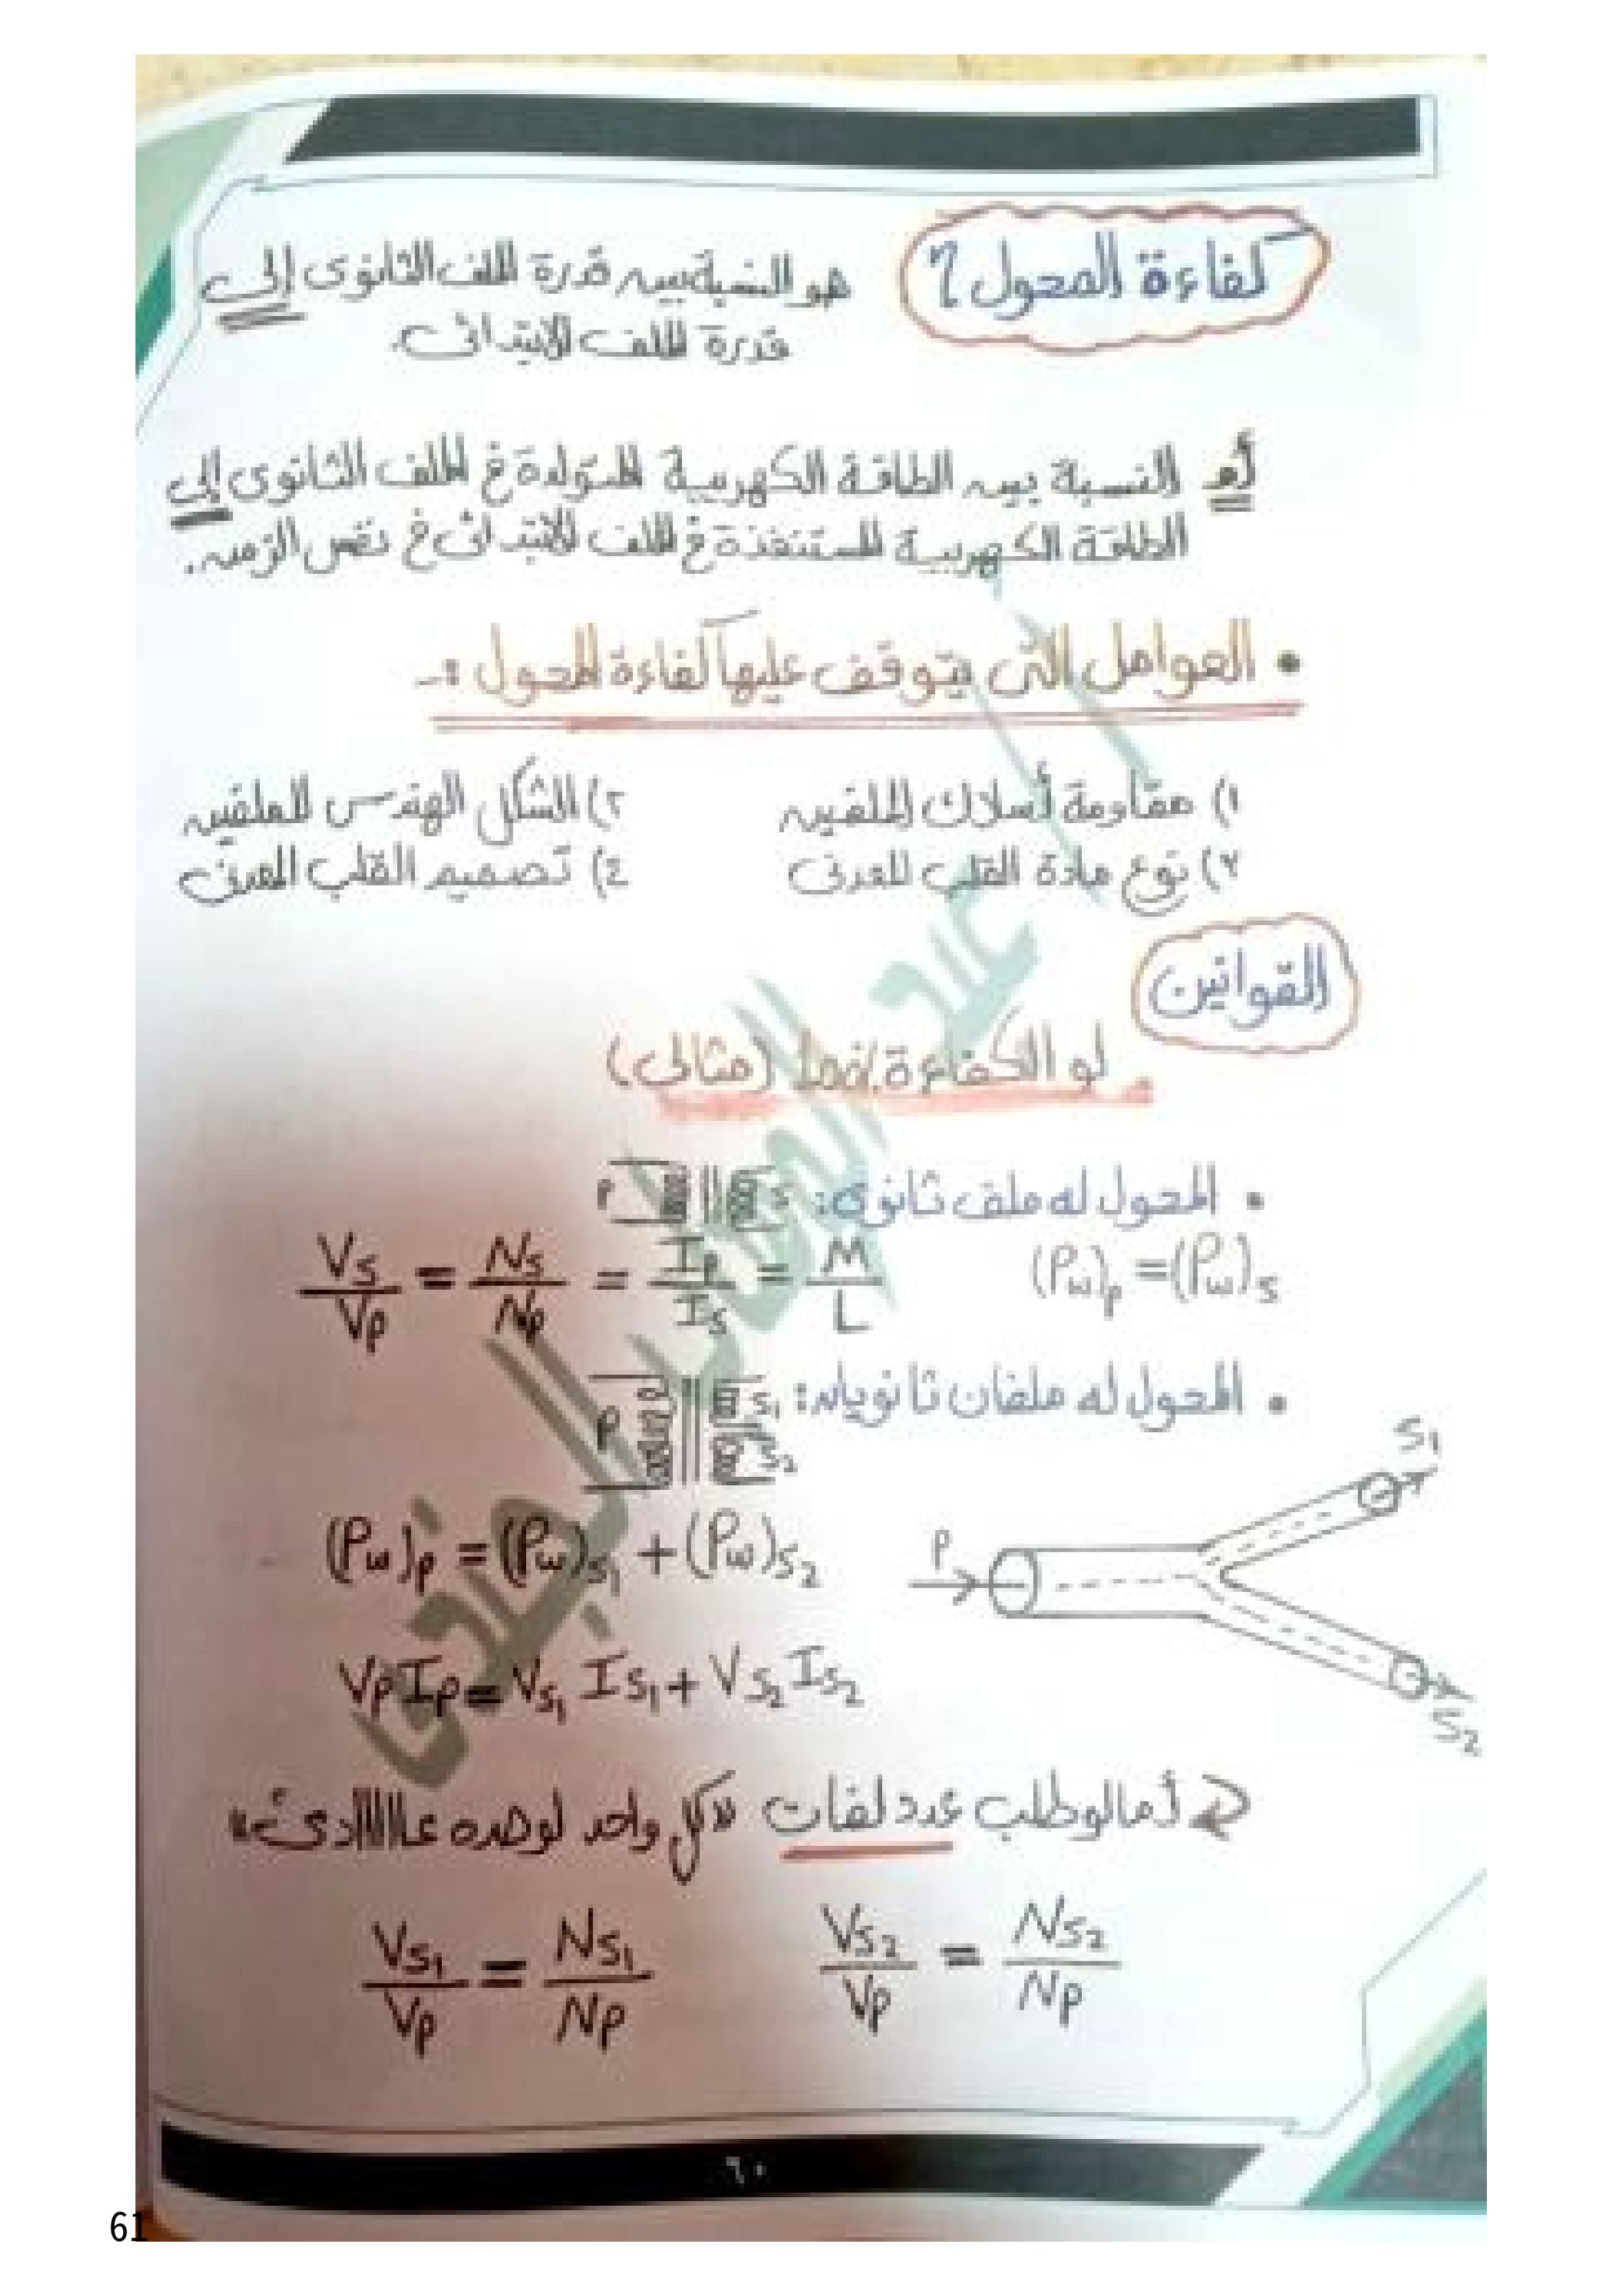 كفاءة المحول η
هو النسبة بين قدرة الملف الثانوى إلى
قدرة الملف الابتدائى.
أو النسبة بين الطاقة الكهربية المتولدة فى الملف الثانوى إلى
الطاقة الكهربية المستنفذة فى الملف الابتدائى فى نفس الزمن.
• العوامل التى يتوقف عليها كفاءة المحول :-
١) مقاومة أسلاك الملفين
٢) الشكل الهندسى للملفين
٣) نوع مادة القلب المعدنى
٤) تصميم القلب المعدنى
القوانين
لو الكفاءة ١٠٠٪ (مثالى)
• المحول له ملف ثانوى:
P S
(Pw)p = (Pw)s
Vs/Vp = Ns/Np = Ip/Is = M/L
• المحول له ملفان ثانويان:
P S1 S2
(Pw)p = (Pw)s1 + (Pw)s2
P S1 S2
VpIp = Vs1 Is1 + Vs2 Is2
أما لو طلب عدد لفات "كل واحد لوحده عاااااادى"
Vs1/Vp = Ns1/Np
Vs2/Vp = Ns2/Np
٦٠
61